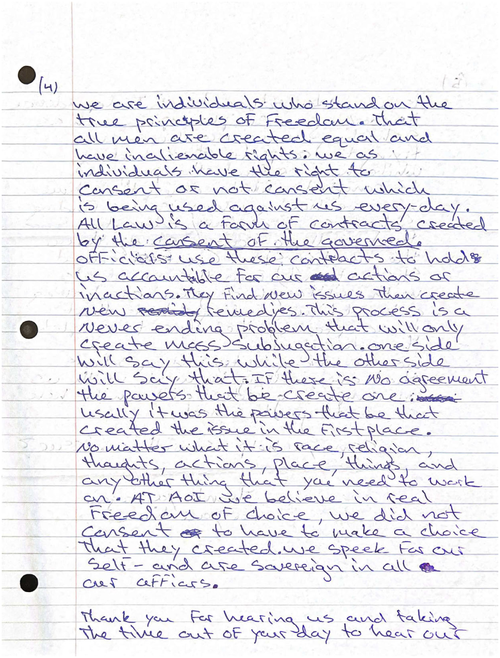 (4)
we are individuals who stand on the
true principles of Freedom. That
all men are created equal and
have inalienable rights. we as
individuals have the right to
consent or not consent which
is being used against us every-day.
All Law is a form of contracts, created
by the consent of the governed.
officials use these contracts to holds
us accountible for our actions or
inactions. They find new issues then create
new remedies. This process is a
never ending problem that will only
create mass subjugation. one side
will say this while the other side
will say that. IF there is no agreement
the powers that be create one
usally it was the powers that be that
created the issue in the first place.
no matter what it is race, religion,
thoughts, actions, place, things, and
any other thing that you need to work
on. AT AOI we believe in real
Freedom of choice, we did not
consent to have to make a choice
That they created. we speek for our
self - and are sovereign in all
our affiars.
Thank you for hearing us and taking
The time out of your day to hear our